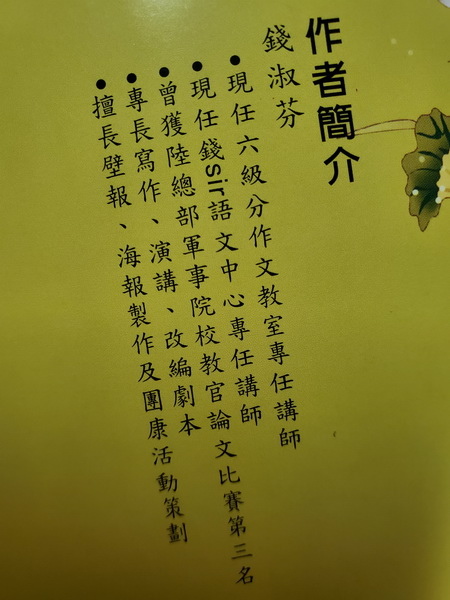 作者簡介
錢淑芬
●現任六級分作文教室專任講師
●現任錢sir語文中心專任講師
●曾獲陸總部軍事院校教官論文比賽第三名
●專長寫作、演講、改編劇本
●擅長壁報、海報製作及團康活動策劃